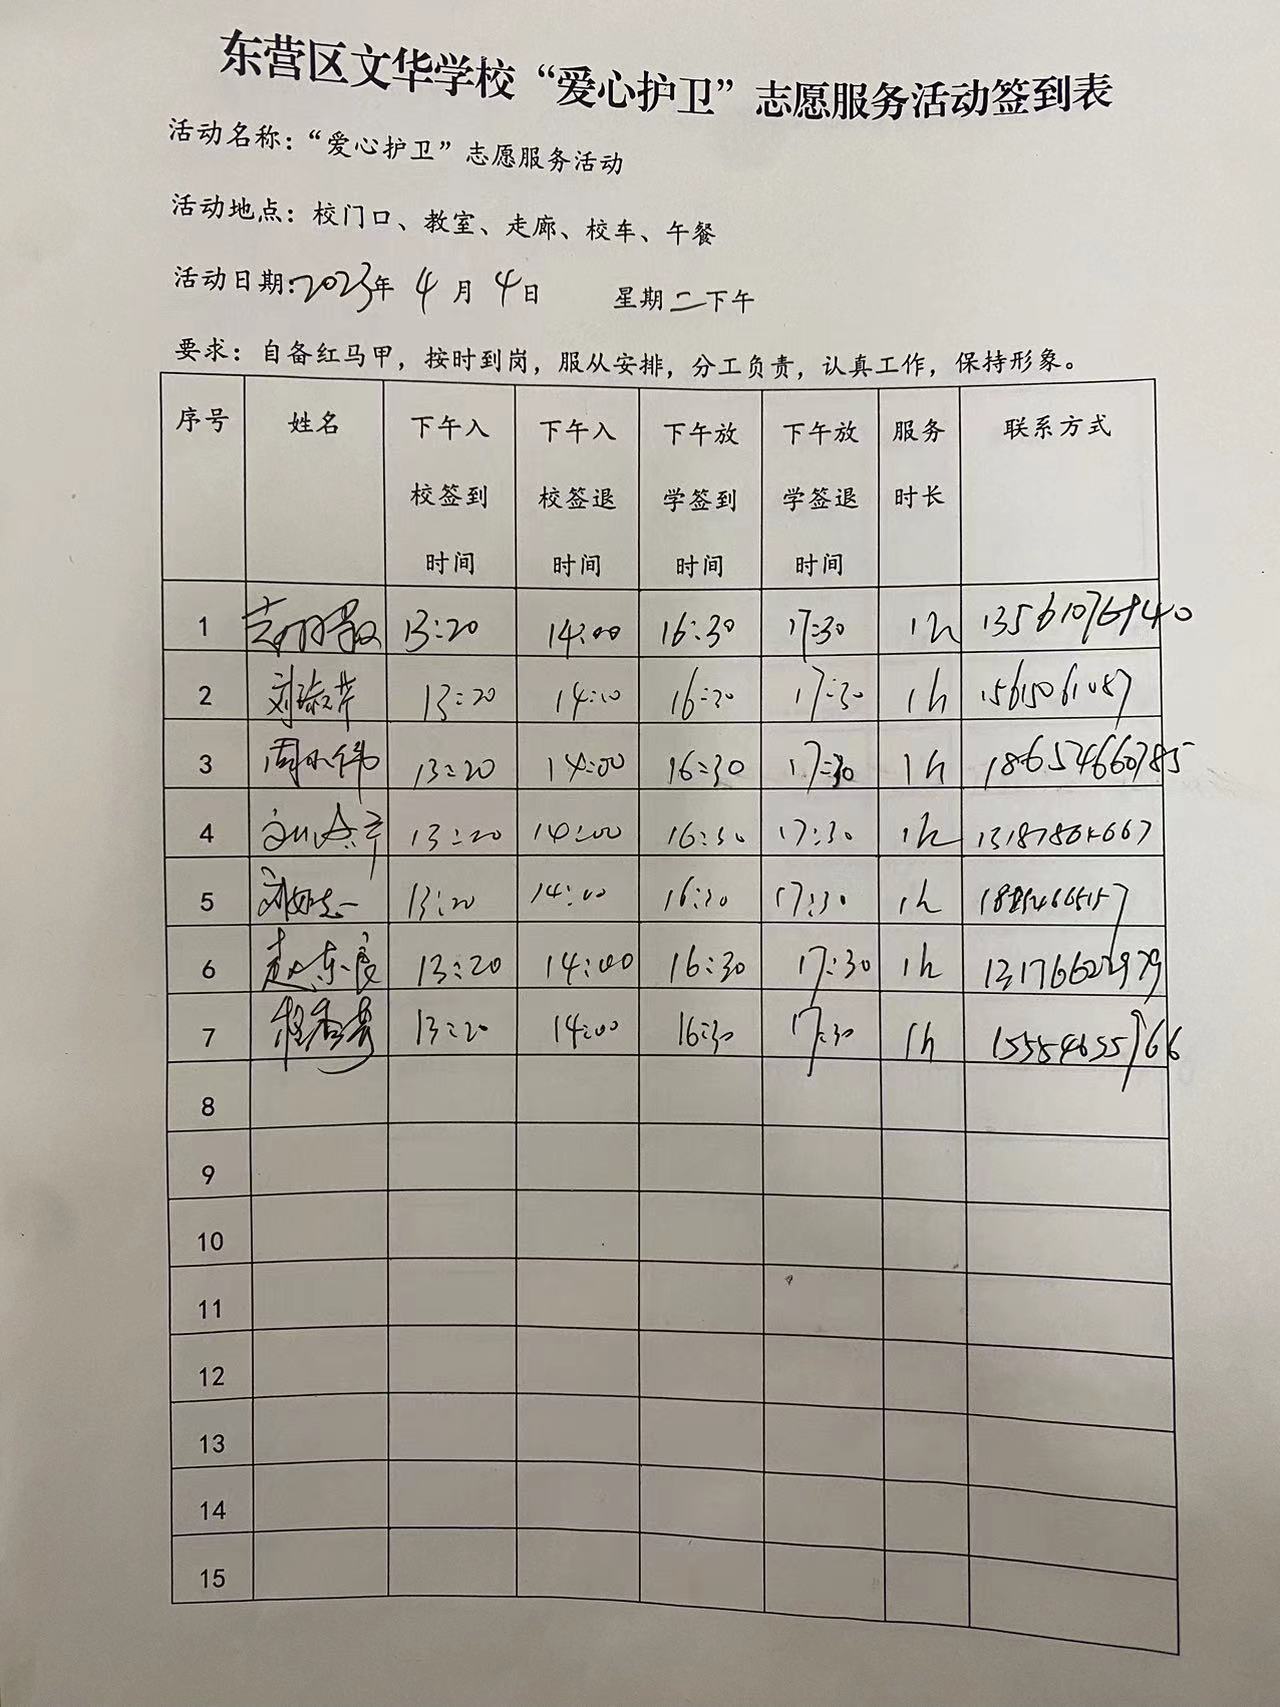 东营区文华学校“爱心护卫”志愿服务活动签到表
活动名称：“爱心护卫”志愿服务活动
活动地点：校门口、教室、走廊、校车、午餐
活动日期:2023年 4月 4日 星期二下午
要求：自备红马甲，按时到岗，服从安排，分工负责，认真工作，保持形象。
序号 姓名 下午入校签到时间 下午入校签退时间 下午放学签到时间 下午放学签退时间 服务时长 联系方式
1 13:20 14:00 16:30 17:30 1h
2 13:20 16:30 17:30 1h
3 13:20 14:00 16:30 17:30 1h 18654660785
4 13:20 14:00 16:30 17:30 1h
5 13:20 14:00 16:30 17:30 1h
6 赵东良 13:20 14:00 16:30 17:30 1h
7 程香勇 13:20 14:00 16:30 17:30 1h 15554655766
8
9
10
11
12
13
14
15